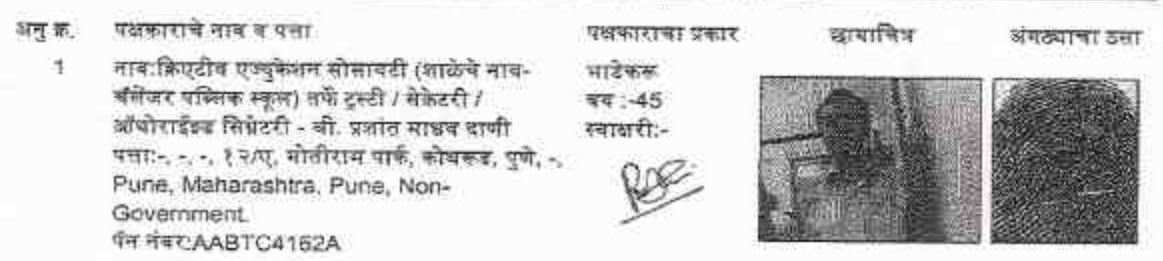 अनु क्र. पक्षकाराचे नाव व पत्ता पक्षकाराचा प्रकार छायाचित्र अंगठ्याचा ठसा
1 नाव:क्रिएटीव एज्युकेशन सोसायटी (शाळेचे नाव- भाडेकरू
चॅलेंजर पब्लिक स्कूल) तर्फे ट्रस्टी / सेक्रेटरी / वय :-45
ऑथोराईझ्ड सिग्नेटरी - श्री. प्रशांत माधव दाणी स्वाक्षरी:-
पत्ता:-, -, -, १२/ए, मोतीराम पार्क, कोथरूड, पुणे, -,
Pune, Maharashtra, Pune, Non-
Government.
पॅन नंबर:AABTC4162A